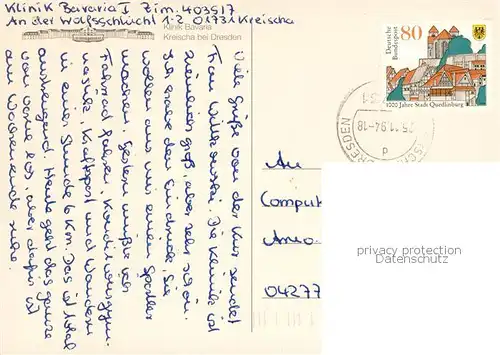 Klinik Bavaria I Zim. 403517
An der Wolfsschlucht 1-2 01731 Kreischa
Klinik Bavaria
Kreischa bei Dresden
Viele Grüße von der Kur sendet
Frau. Die Klinik ist
ziemlich groß, aber sehr schön.
Ich habe den Eindruck, sie
wollen aus mir einen Sportler
machen. Gestern mußte ich
Fahrrad fahren, Konditionsgym-
nastik, Kraftsport und Wandern
in einer Stunde 6 km. Das ist total
anstrengend. Heute geht das ganze
von vorne los, aber dafür ist
am Wochenende Ruhe.
Deutsche
Bundespost
80
1000 Jahre Stadt Quedlinburg
25.11.94-18
DRESDEN
An
Comput
04277
privacy protection
Datenschutz